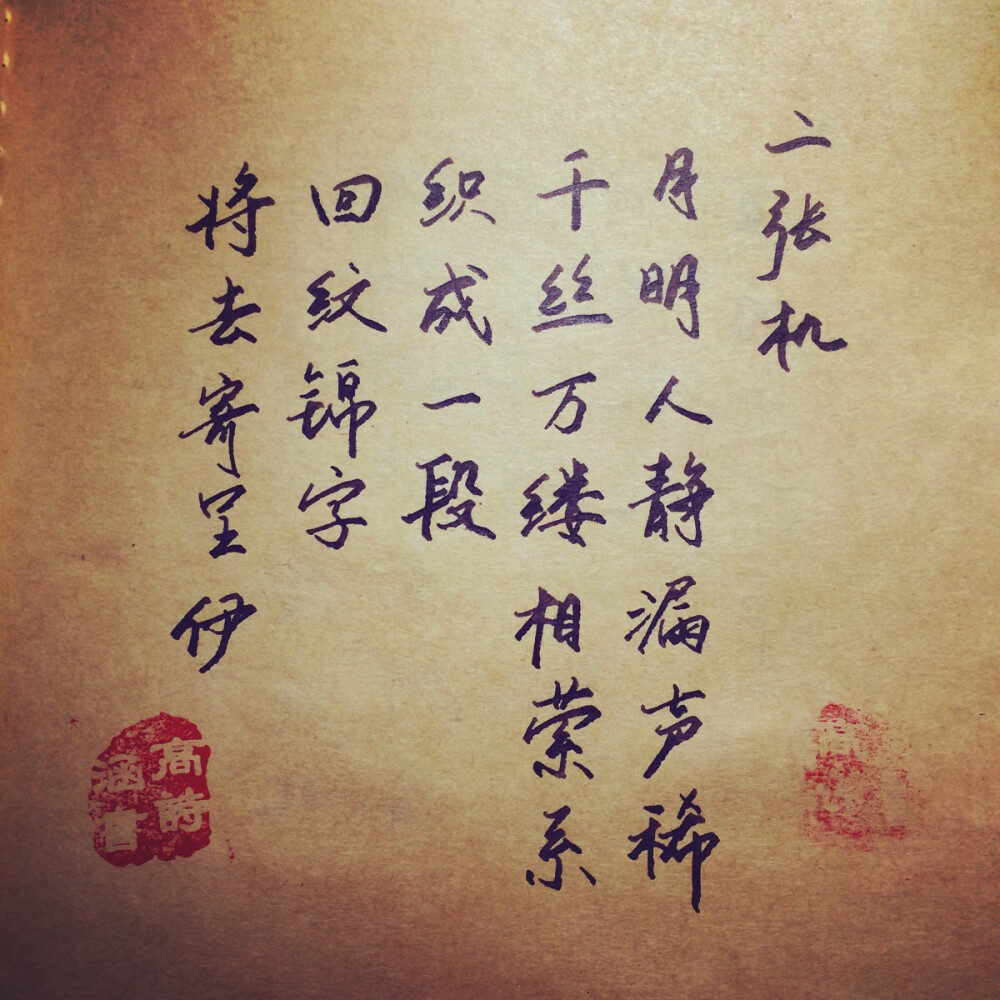 二张机
月明人静漏声稀
千丝万缕相萦系
织成一段
回纹锦字
将去寄呈伊
高诗
涵书